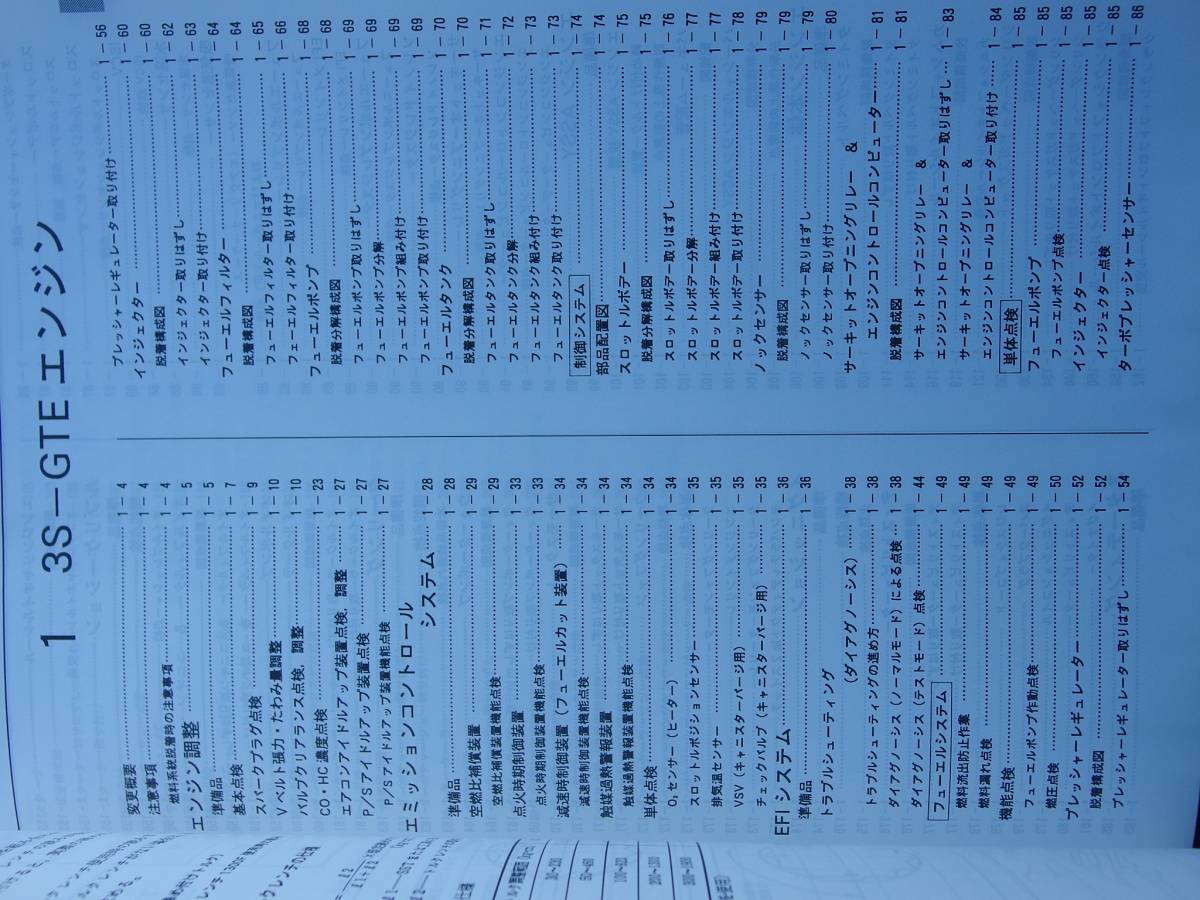 1　3S－GTE エンジン
変更概要 1－4
注意事項 1－4
燃料系統脱着時の注意事項 1－4
エンジン調整 1－5
準備品 1－5
基本点検 1－7
スパークプラグ点検 1－9
Vベルト張力・たわみ量調整 1－10
バルブクリアランス点検，調整 1－10
CO・HC濃度点検 1－23
エアコンアイドルアップ装置点検，調整 1－27
P／Sアイドルアップ装置点検 1－27
P／Sアイドルアップ装置機能点検 1－27
エミッションコントロール
システム 1－28
準備品 1－28
空燃比補償装置 1－29
空燃比補償装置機能点検 1－29
点火時期制御装置 1－33
点火時期制御装置機能点検 1－33
減速時制御装置（フューエルカット装置） 1－34
減速時制御装置機能点検 1－34
触媒過熱警報装置 1－34
触媒過熱警報装置機能点検 1－34
単体点検 1－34
O₂センサー（ヒーター） 1－34
スロットルポジションセンサー 1－35
排気温センサー 1－35
VSV（キャニスターパージ用） 1－35
チェックバルブ（キャニスターパージ用） 1－35
EFIシステム 1－36
準備品 1－36
トラブルシューティング
（ダイアグノーシス） 1－38
トラブルシューティングの進め方 1－38
ダイアグノーシス（ノーマルモード）による点検 1－38
ダイアグノーシス（テストモード）点検 1－44
フューエルシステム 1－49
燃料流出防止作業 1－49
燃料漏れ点検 1－49
機能点検 1－49
フューエルポンプ作動点検 1－49
燃圧点検 1－50
プレッシャーレギュレーター 1－52
脱着構成図 1－52
プレッシャーレギュレーター取りはずし 1－54
プレッシャーレギュレーター取り付け 1－56
インジェクター 1－60
脱着構成図 1－60
インジェクター取りはずし 1－62
インジェクター取り付け 1－63
フューエルフィルター 1－64
脱着構成図 1－64
フューエルフィルター取りはずし 1－65
フューエルフィルター取り付け 1－66
フューエルポンプ 1－68
脱着分解構成図 1－68
フューエルポンプ取りはずし 1－69
フューエルポンプ分解 1－69
フューエルポンプ組み付け 1－69
フューエルポンプ取り付け 1－69
フューエルタンク 1－70
脱着分解構成図 1－70
フューエルタンク取りはずし 1－71
フューエルタンク分解 1－72
フューエルタンク組み付け 1－73
フューエルタンク取り付け 1－73
制御システム 1－74
部品配置図 1－74
スロットルボデー 1－75
脱着分解構成図 1－75
スロットルボデー取りはずし 1－76
スロットルボデー分解 1－77
スロットルボデー組み付け 1－77
スロットルボデー取り付け 1－78
ノックセンサー 1－79
脱着構成図 1－79
ノックセンサー取りはずし 1－79
ノックセンサー取り付け 1－80
サーキットオープニングリレー　&
エンジンコントロールコンピューター 1－81
脱着構成図 1－81
サーキットオープニングリレー　&
エンジンコントロールコンピューター取りはずし 1－83
サーキットオープニングリレー　&
エンジンコントロールコンピューター取り付け 1－84
単体点検 1－85
フューエルポンプ 1－85
フューエルポンプ点検 1－85
インジェクター 1－85
インジェクター点検 1－85
ターボプレッシャーセンサー 1－86